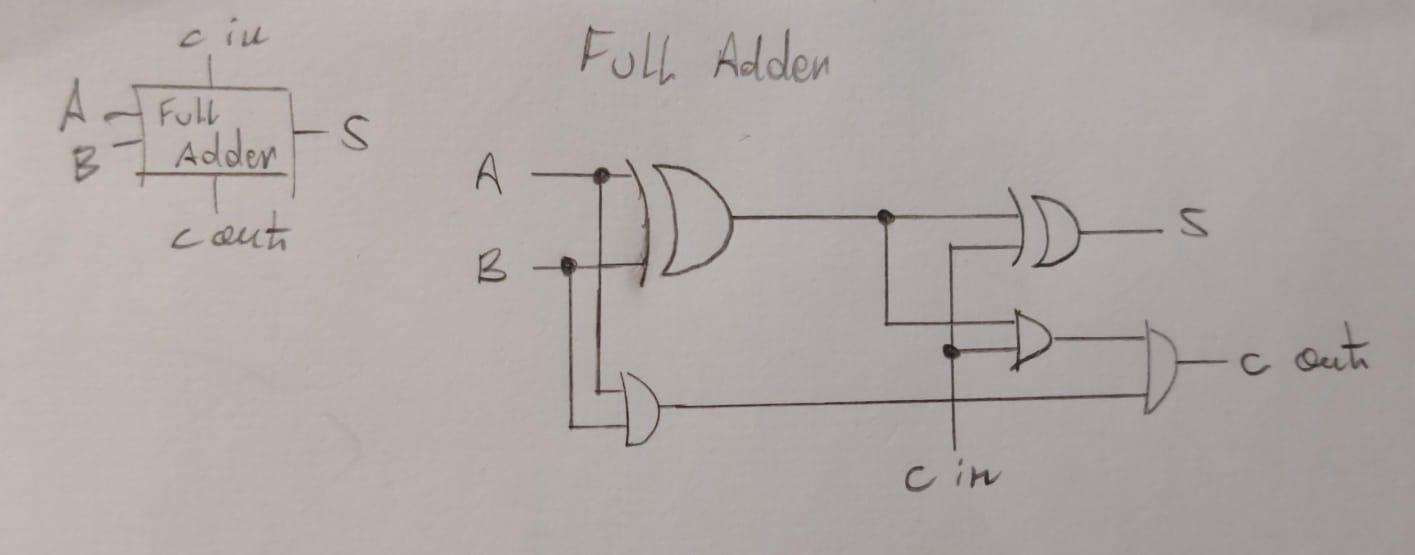 c in
A
B
Full
Adder
S
c out
Full Adder
A
B
S
c out
c in